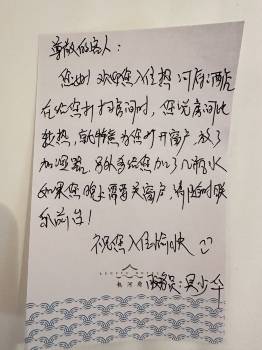 尊敬的客人：
您好！欢迎您入住热河府酒店
在给您打扫房间时，您说房间比
较热，就帮您开窗户，放了
加湿器，另外多给您加了几瓶水
如果您晚上需要关窗户，请随时联
系前台！
祝您入住愉快
热河府
服务员：吴少